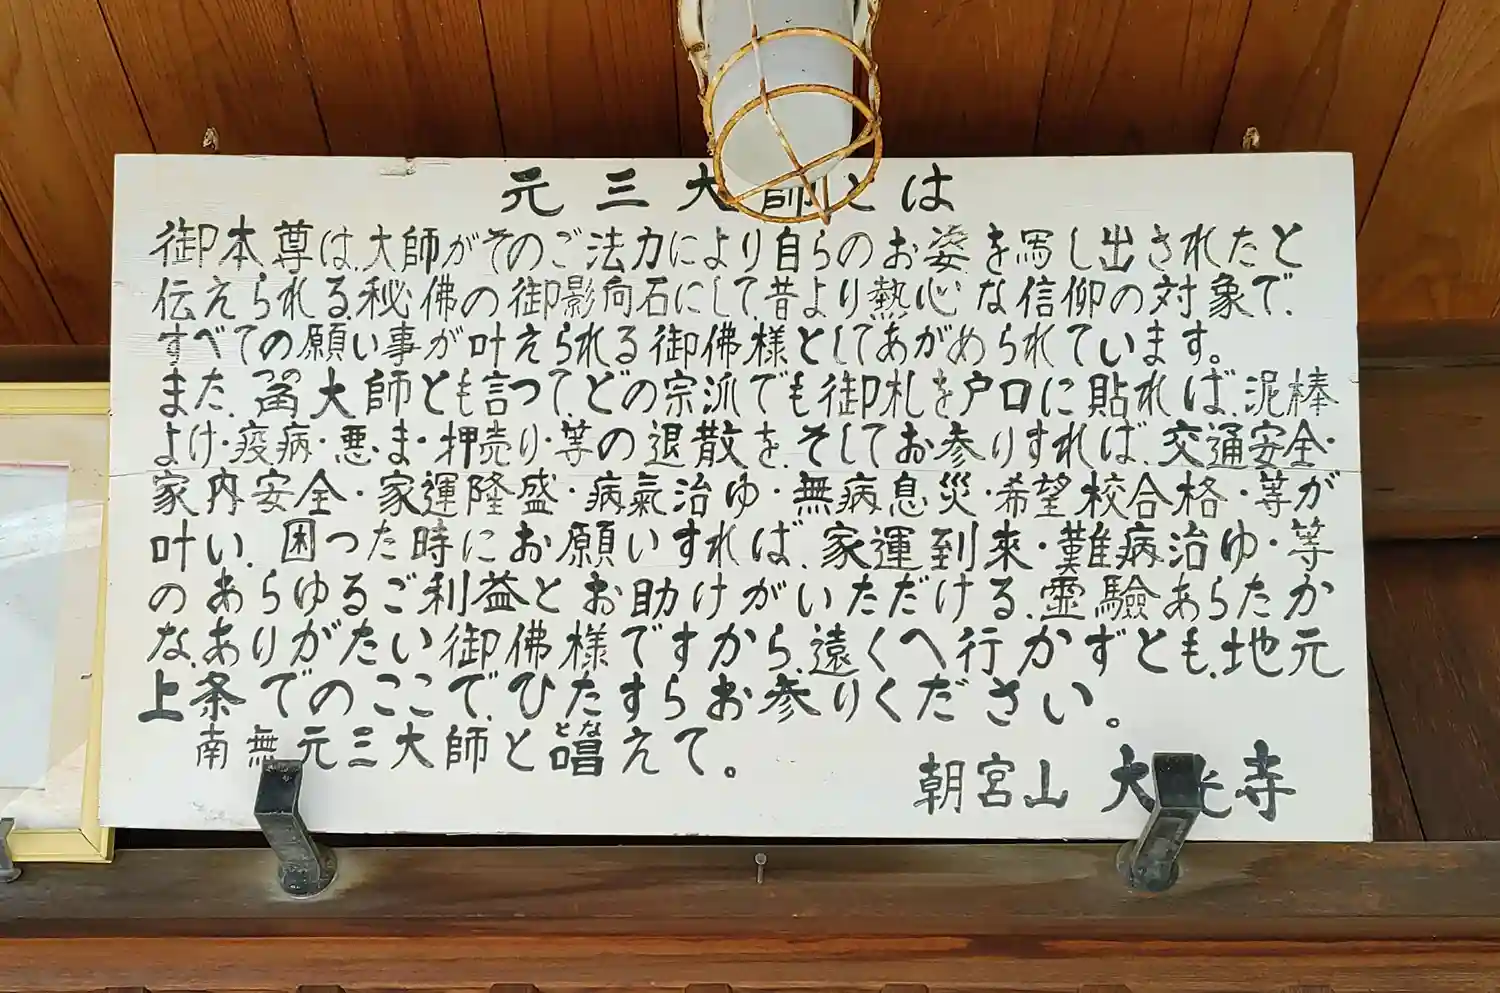 元三大師とは
御本尊は、大師がそのご法力により自らのお姿を写し出されたと
伝えられる、秘佛の御影向石にして、昔より熱心な信仰の対象で、
すべての願い事が叶えられる御佛様としてあがめられています。
また、角大師とも言って、どの宗派でも御札を戸口に貼れば、泥棒
よけ・疫病・悪ま・押売り・等の退散を、そしてお参りすれば、交通安全・
家内安全・家運隆盛・病氣治ゆ・無病息災・希望校合格・等が
叶い、困った時にお願いすれば、家運到來・難病治ゆ・等
のあらゆるご利益とお助けがいただける、霊驗あらたか
な、ありがたい御佛様ですから、遠くへ行かずとも、地元
上条でのここで、ひたすらお参りください。
南無元三大師と唱えて。
朝宮山 大光寺